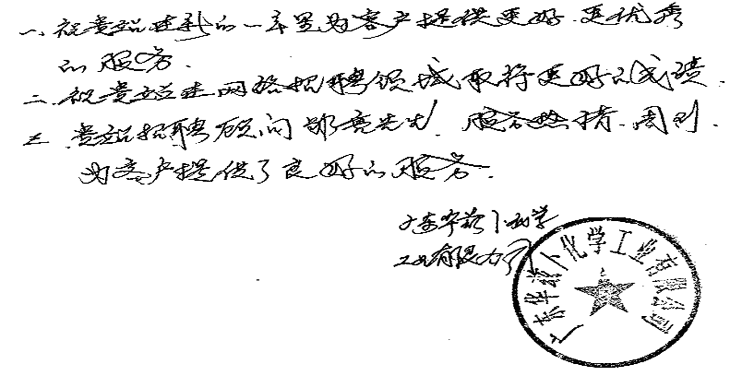 一、祝贵站在新的一年里为客户提供更好.更优秀
的服务.
二.祝贵站在网络招聘领域取得更好的成绩.
三.贵站招聘顾问郭亮先生,服务热情.周到.
为客户提供了良好的服务.
广东华兹卜化学
工业有限公司
广东华兹卜化学工业有限公司